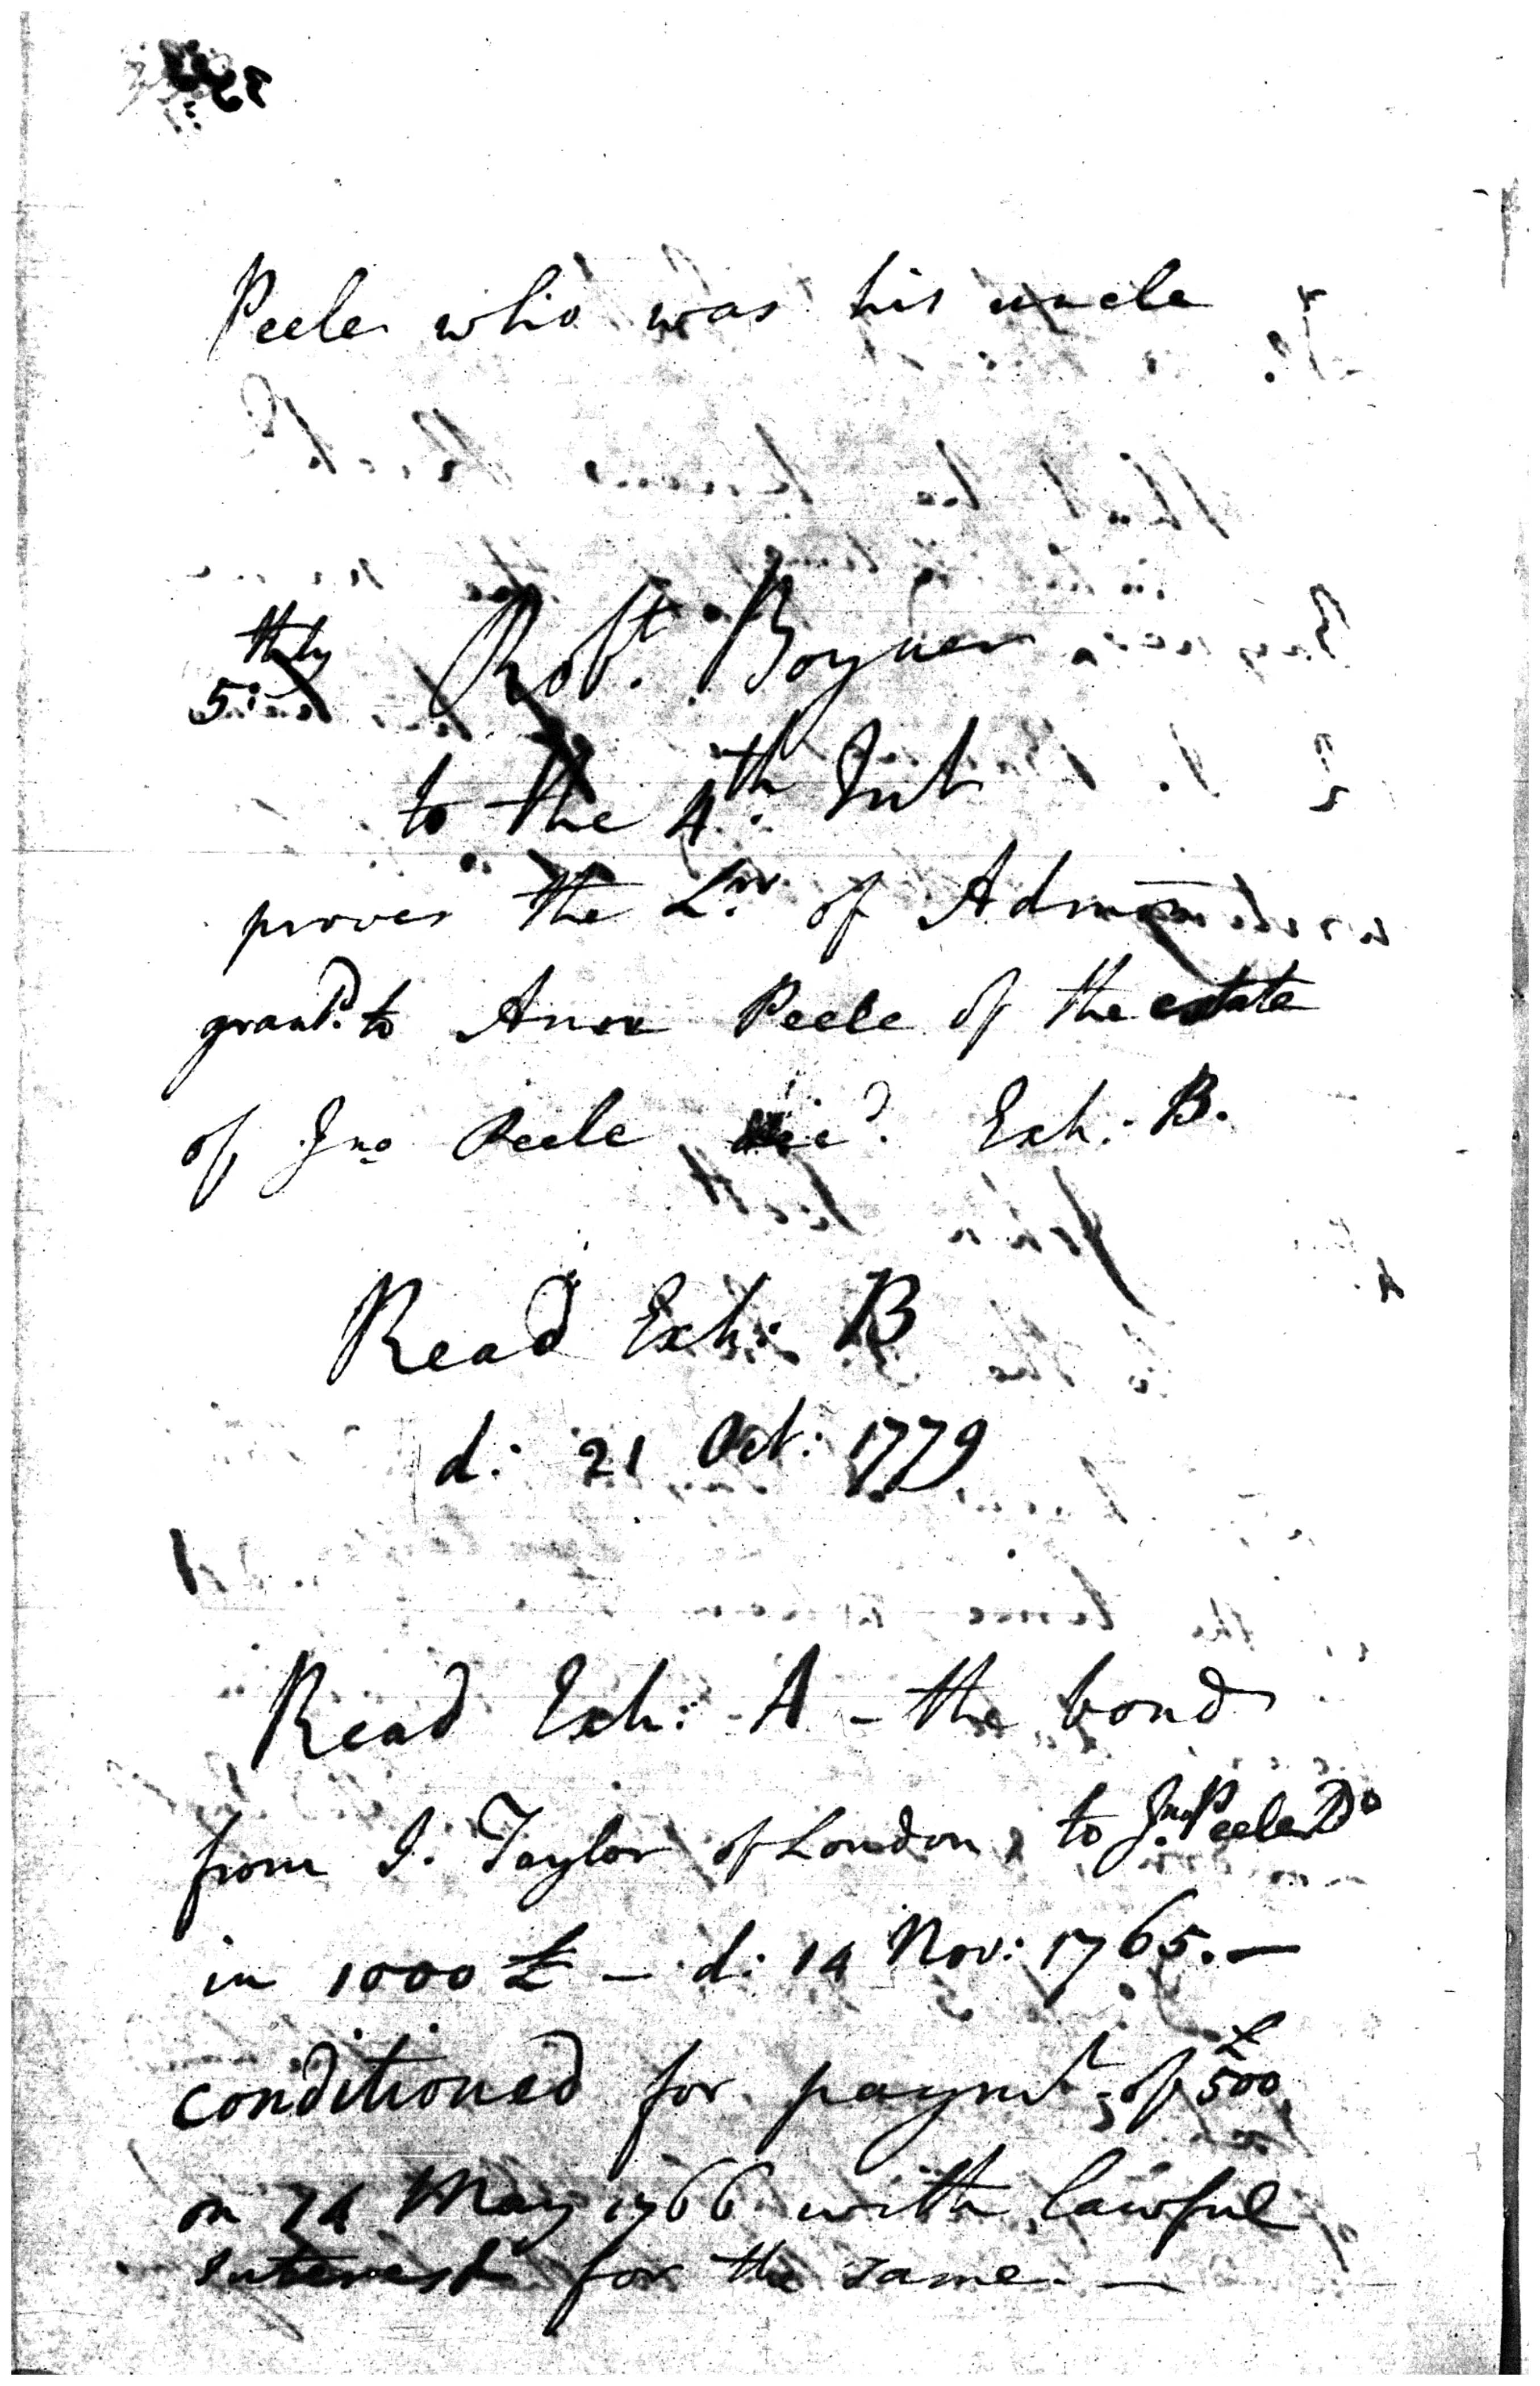 Peele who was his uncle
5:thly Robt. Boyner
to the 4th. Int
proves the Lrs of Admon
grantd. to Anne Peele of the estate
of Jno Peele decd. Exh: B.
Read Exh: B
d: 21 Oct: 1779
Read Exh: A - the bond
from J. Taylor of London to Jno. Peele Do
in 1000 £ - d: 14 Nov: 1765. -
conditioned for paymt. of £500
on 14 May 1766 with lawful
interest for the same. -